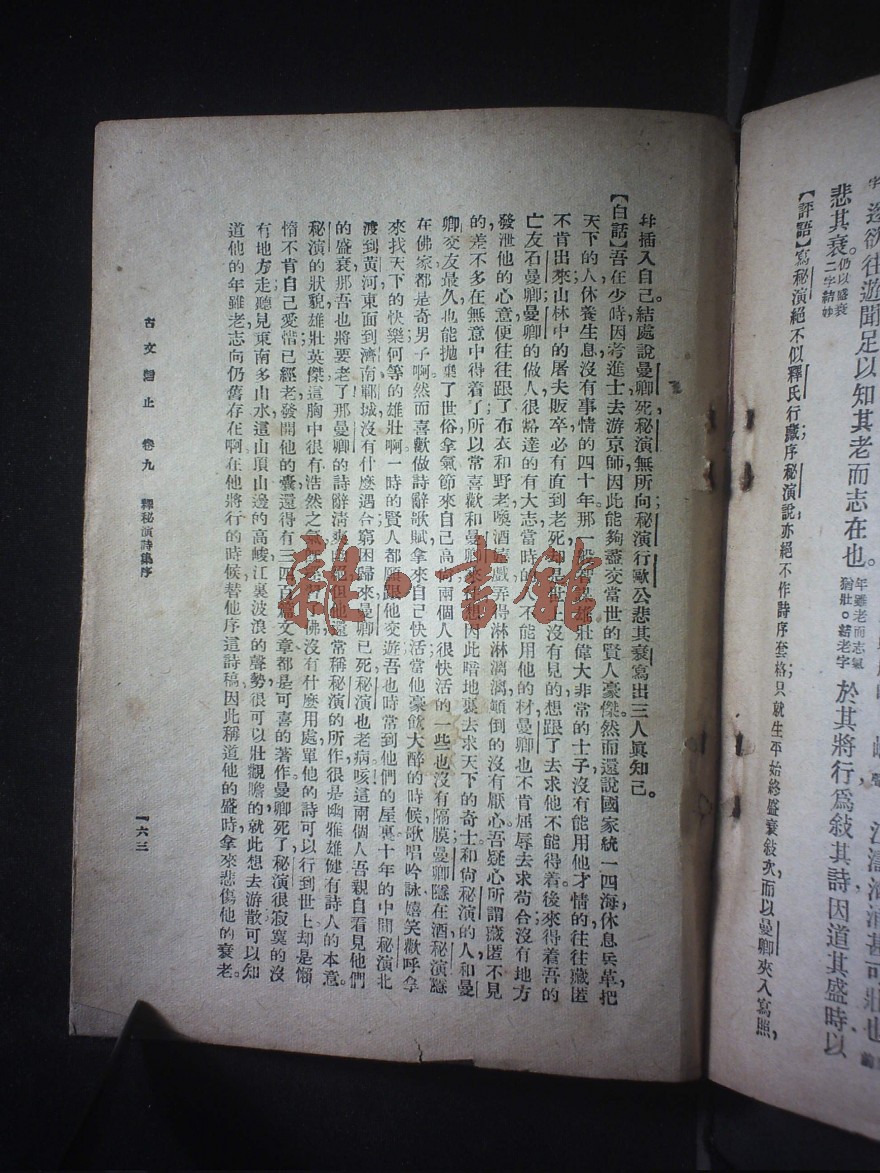 悲其衰。仍以盛衰二字結妙
【評語】寫秘演絕不似釋氏行藏序秘演說亦絕不作詩序套格只就生平始終盛衰敍次而以曼卿夾入寫照，
遂欲往遊聞足以知其老而志在也。年雖老而志氣猶壯。結老字於其將行爲敍其詩因道其盛時以
江濤洶涌甚可壯也
幷插入自己。結處說曼卿死秘演無所向秘演行歐公悲其衰寫出三人眞知己。
【白話】吾在少時因考進士去游京師因此能夠盡交當世的賢人豪傑。然而還說國家統一四海，休息兵革，把
天下的人休養生息沒有事情的四十年。那一般智謀雄壯偉大非常的士子，沒有能用他才情的往往藏匿
不肯出來山林中的屠夫販卒必有直到老死却是世上沒有見的，想跟了去求他不能得着後來得着吾的
亡友石曼卿，曼卿的做人，很豁達的有大志當時的人不能用他的材，曼卿也不肯屈辱去求苟合沒有地方
發泄他的心意便往往跟了布衣和野老喚酒嬉戲弄得淋淋漓漓顛倒的沒有厭心吾疑心所謂藏匿不見
的，差不多在無意中得着了，所以常喜歡和曼卿來往他因此暗地裏去求天下的奇士和尙秘演的人和曼
卿交友最久也能拋棄了世俗拿氣節來自己高尙兩個人很快活的一些也沒有隔膜，曼卿隱在酒，秘演隱
在佛家都是奇男子啊然而喜歡做詩辭歌賦拿來自己快活當他豪飲大醉的時候歌唱吟詠嬉笑歡呼拿
來找天下的快樂何等的雄壯啊一時的賢人都願跟他交遊吾也時常到他們的屋裏十年的中間秘演北
渡到黃河東面到濟南鄆城沒有什麼遇合窮困歸來曼卿已死，秘演也老病咳這兩個人吾親自看見他們
的盛衰那吾也將要老了那曼卿的詩辭清爽絕但他還常稱秘演的所作很是幽雅雄健有詩人的本意。
秘演的狀貌雄壯英傑這胸中很有浩然之氣佛沒有什麼用處單他的詩可以行到世上却是懶
惰不肯自己愛惜已經老發開他的囊還得有三四百篇文章都是可喜的著作。曼卿死了秘演很寂寞的沒
有地方走聽見東南多山水這山頂山邊的高峻江裏波浪的聲勢很可以壯觀瞻的就此想去游散可以知
道他的年雖老志向仍舊存在啊在他將行的時候替他序這詩稿因此稱道他的盛時拿來悲傷他的衰老。
古文觀止　卷九　釋秘演詩集序
一六三
雜·書館